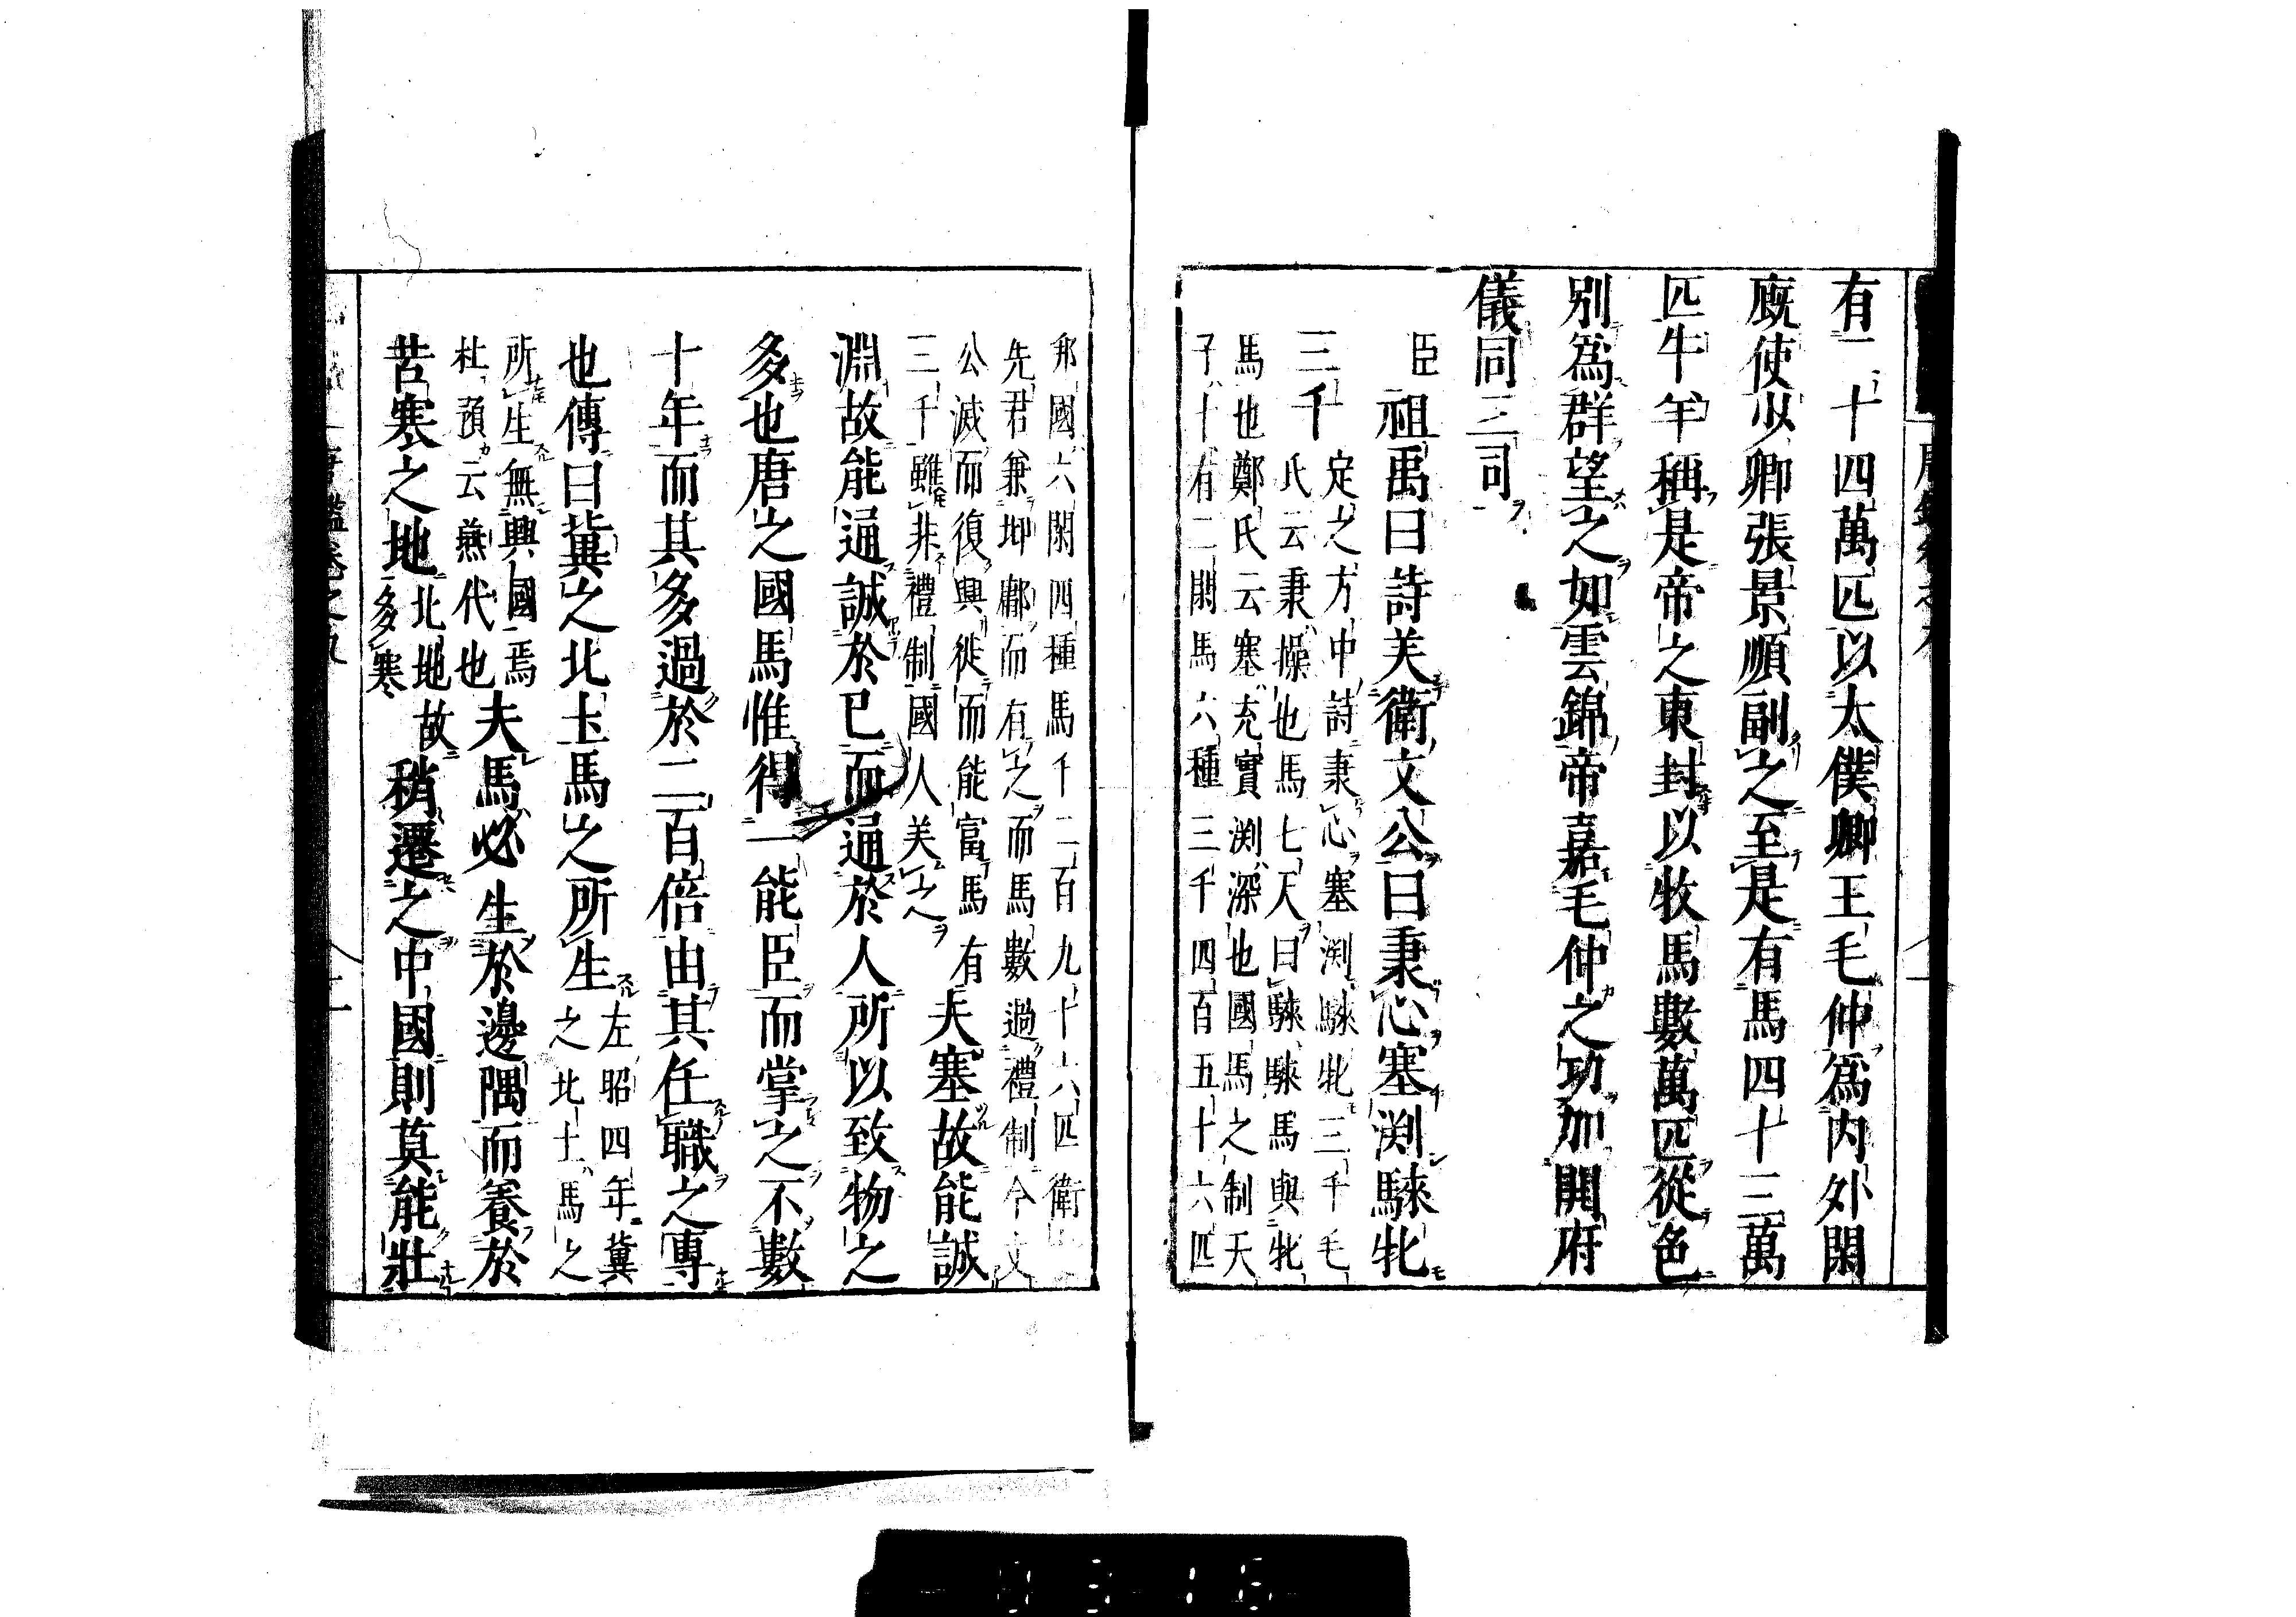 有二十四萬匹以太僕卿王毛仲爲內外閑
廐使少卿張景順副之至是有馬四十三萬
匹牛羊稱是帝之東封以牧馬數萬匹從色
別爲群望之如雲錦帝嘉毛仲之功加開府
儀同三司
臣祖禹曰詩美衛文公曰秉心塞渕騋牝
三千
定之方中詩秉心塞渕騋牝三千毛
氏云秉操也馬七尺曰騋騋馬與牝
馬也鄭氏云塞充實渕深也國馬之制天
子十有二閑馬六種三千四百五十六匹
邦國六閑四種馬千二百九十六匹衛
先君兼邶鄘而有之而馬數過禮制今文
公滅而復興徙而能富馬有
三千雖非禮制國人美之
夫塞故能誠
淵故能通誠於已而通於人所以致物之
多也唐之國馬惟得一能臣而掌之不數
十年而其多過於二百倍由其任職之專
也傳曰冀之北土馬之所生
左昭四年冀
之北土馬之
所生無興國焉
杜預云燕代也
夫馬必生於邊隅而養於
苦寒之地
北地故
多寒
稍遷之中國則莫能壯
唐鑑卷之九